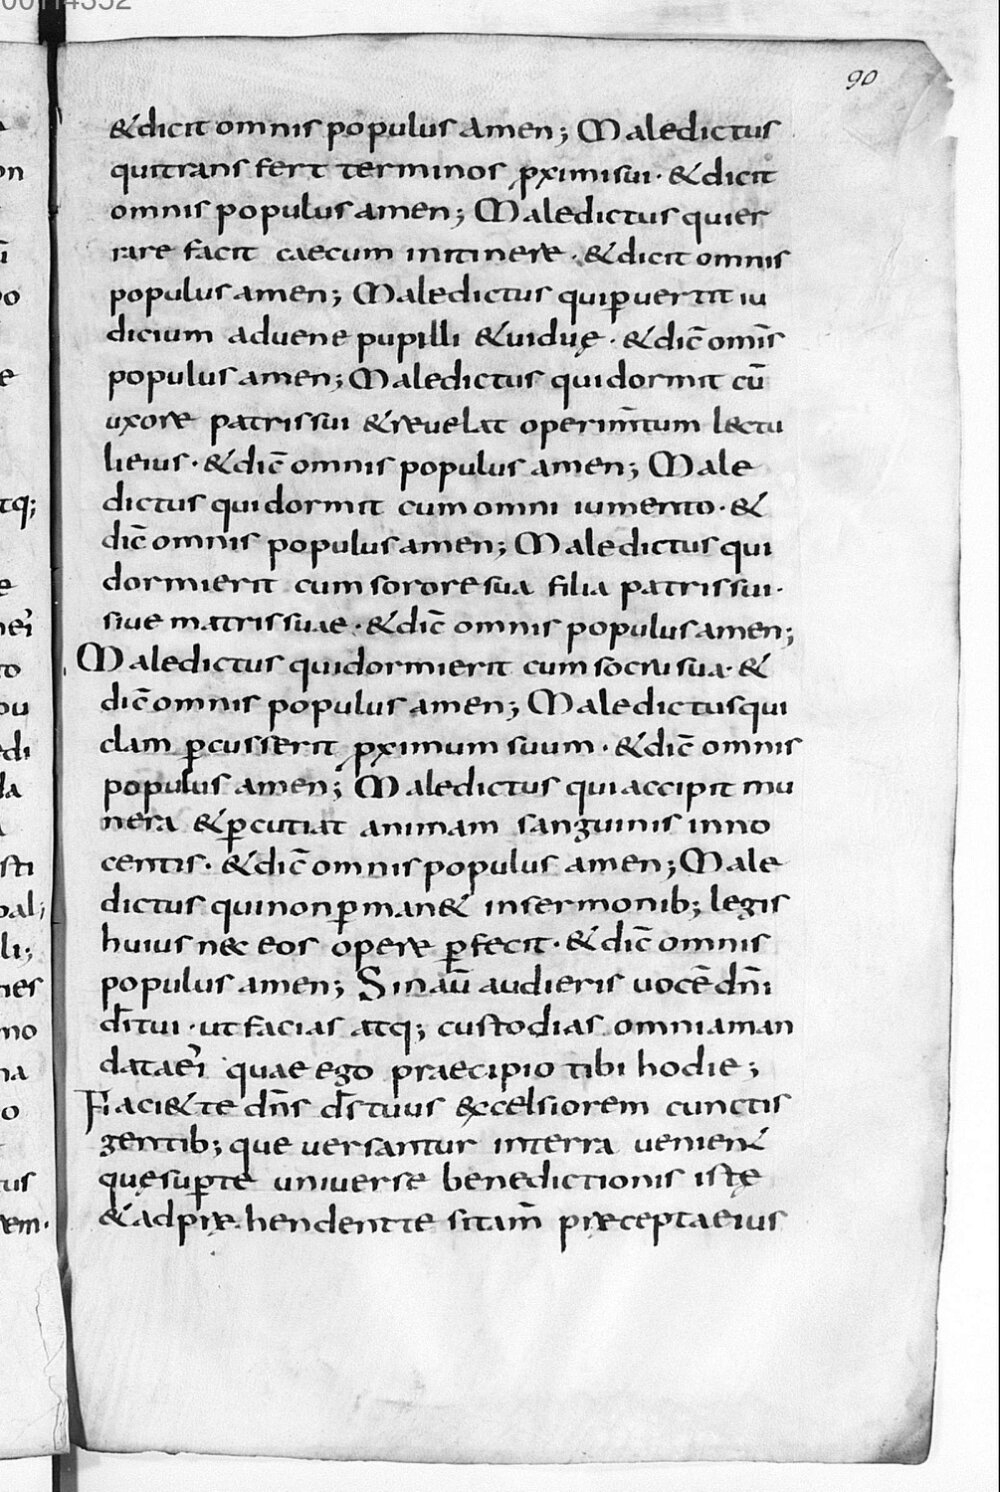 90
&dicit omnis populus amen; Maledictus
qui trans fert terminos p̱ximi sui · &dicit
omnis populus amen; Maledictus qui er
rare facit caecum in itinere · &dicit omnis
populus amen; Maledictus qui ꝑuertit iu
dicium aduene pupilli &uiduę · &dic̄ omīs
populus amen; Maledictus qui dormit cū
uxore patris sui &reuelat operim̄tum lectu
li eius · &dic̄ omnis populus amen; Male
dictus qui dormit cum omni iumento · &
dic̄ omnis populus amen; Maledictus qui
dormierit cum sorore sua filia patris sui ·
siue matris suae · &dic̄ omnis populus amen;
Maledictus qui dormierit cum socru sua · &
dic̄ omnis populus amen; Maledictus qui
clam ꝑcusserit ꝓximum suum · &dic̄ omnis
populus amen; Maledictus qui accipit mu
nera &ꝑcutiat animam sanguinis inno
centis · &dic̄ omnis populus amen; Male
dictus qui non ꝑman& in sermonib; legis
huius nec eos opere ꝑfecit · &dic̄ omnis
populus amen; Sin aū audieris uocē dn̄i
dī tui · ut facias atq; custodias omnia man
data ei quae ego praecipio tibi hodie;
Faci&te dn̄s ds̄ tuus excelsiorem cunctis
gentib; que uersantur in terra uenient
quę suꝑte uniuerse benedictionis istę
&adpręhendent te si tam̄ pręcepta eius